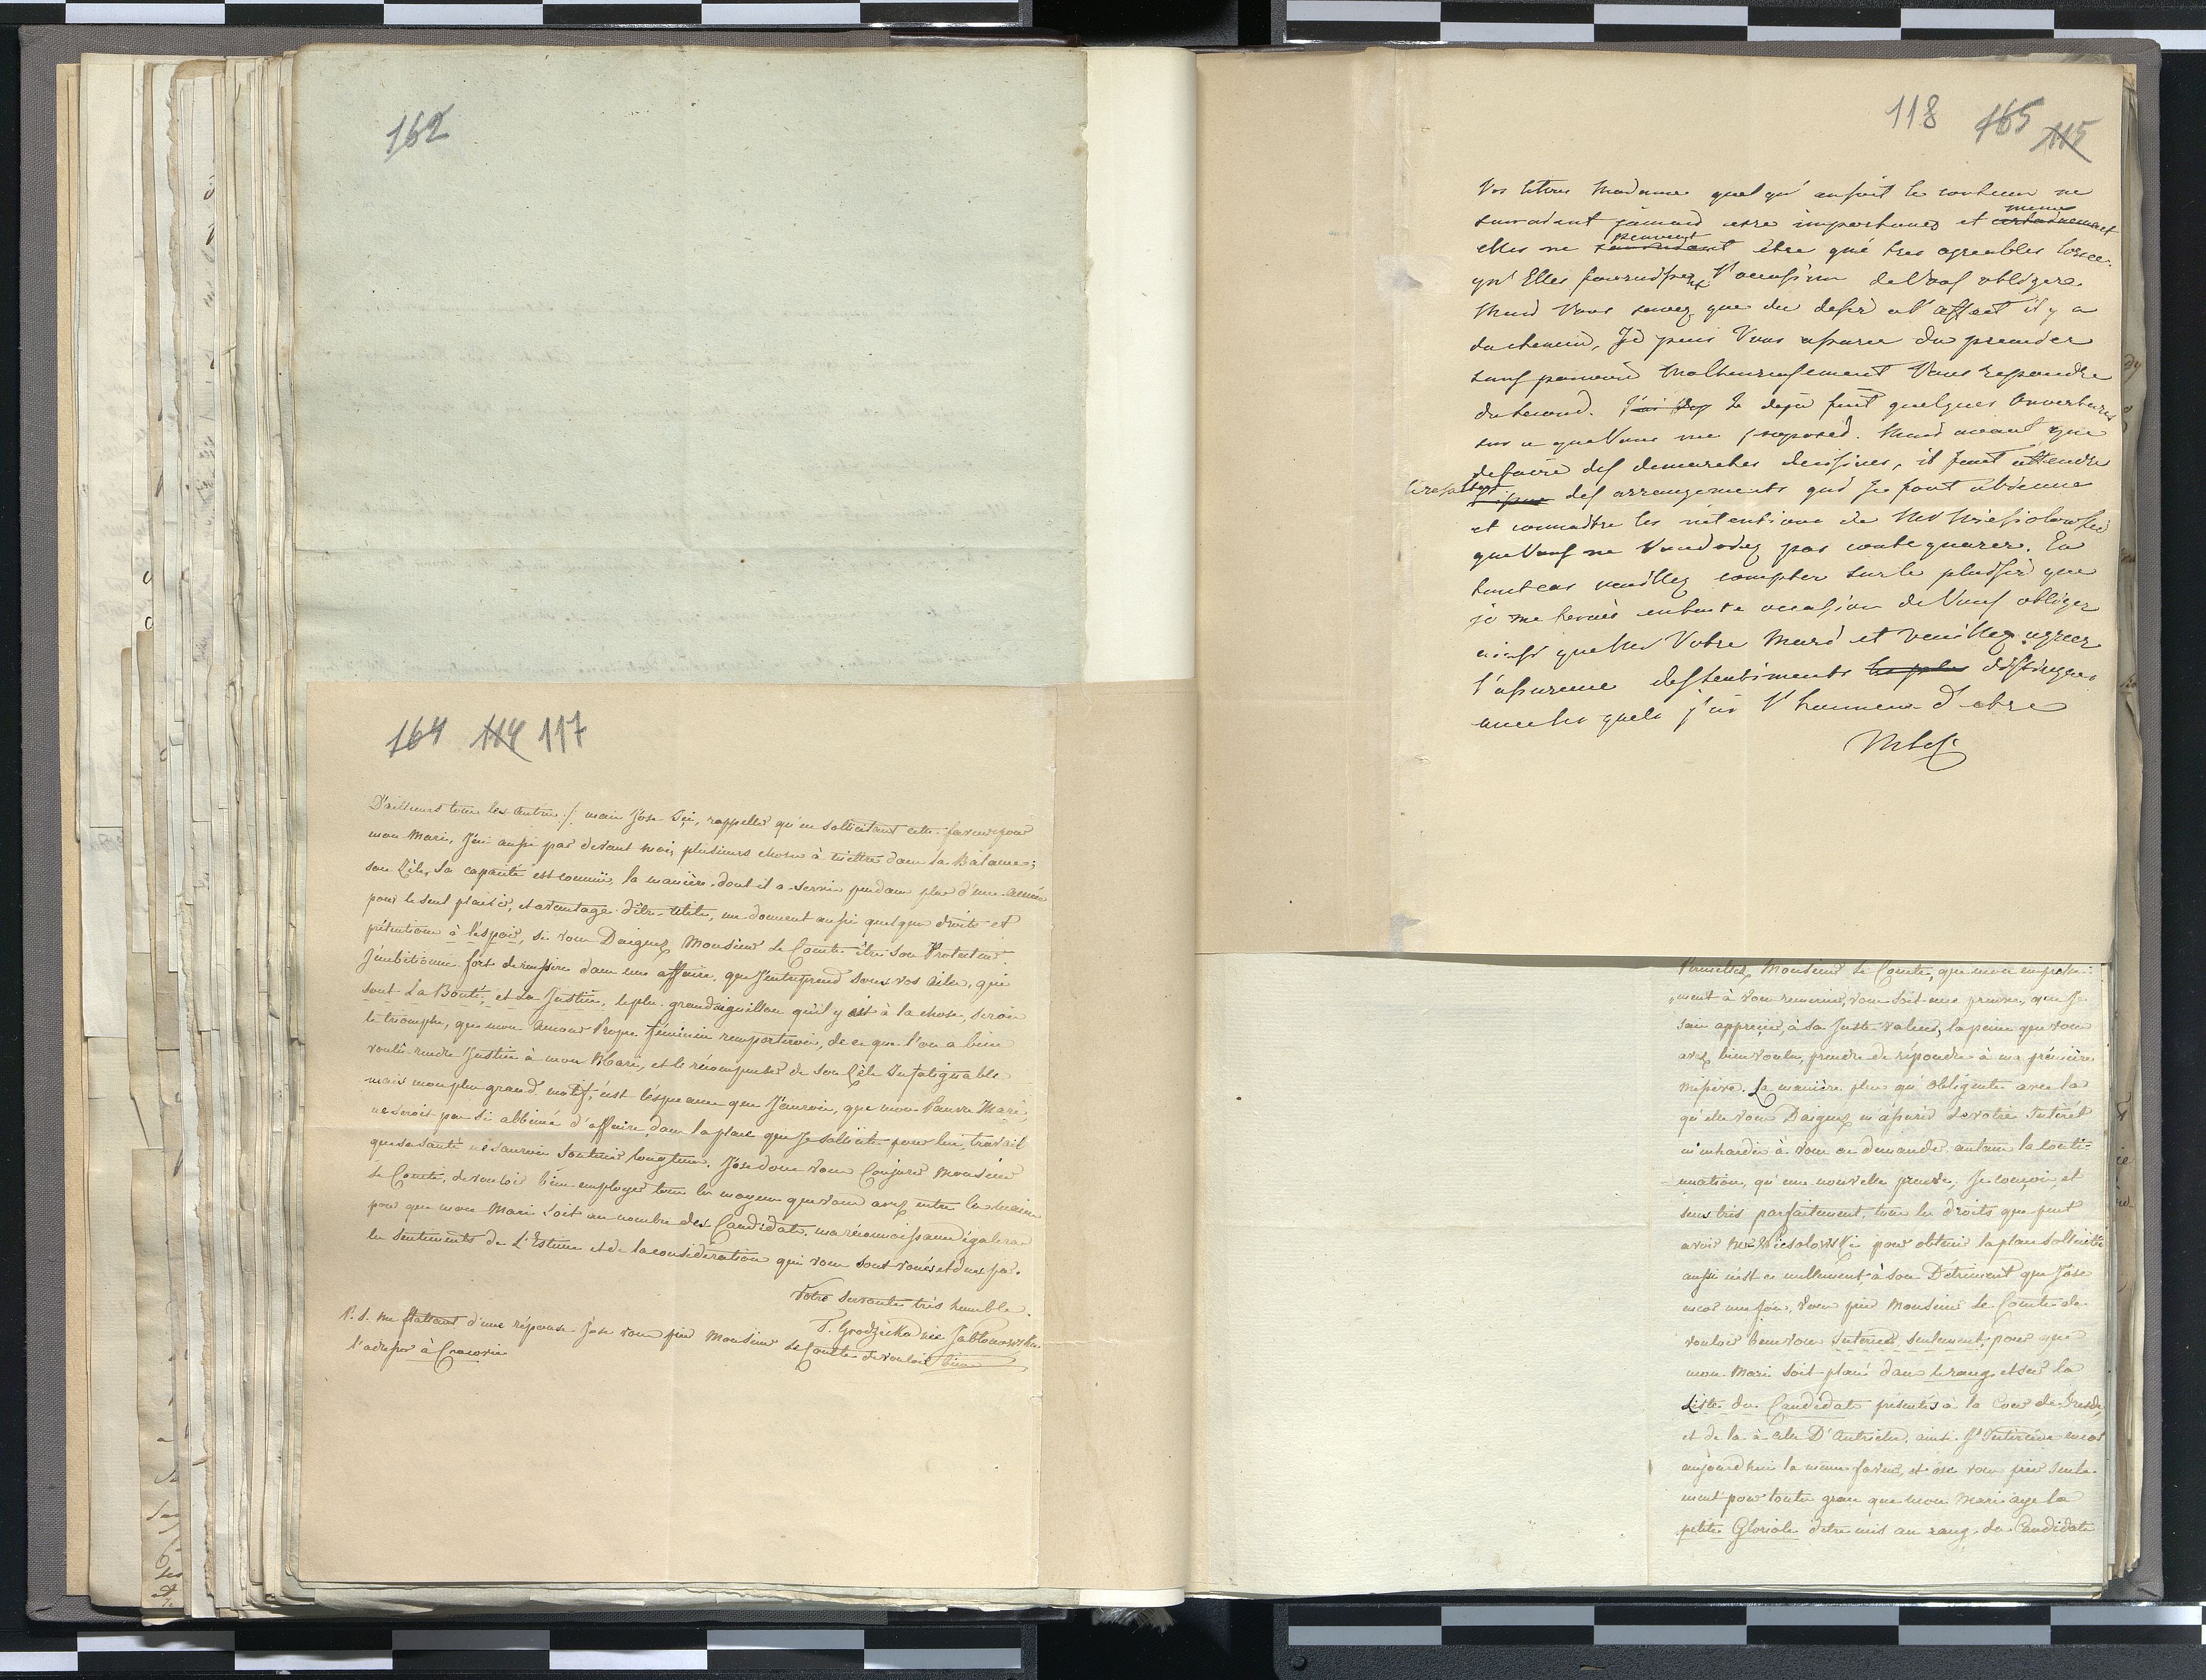 162
164 114 117
D'ailleurs tous les autres /: mais J'ose Ici, rappeller qu'en sollicitant cette faveur pour
mon Mari, J'ai aussi par devant moi, plusieurs choses à mettre dans la Balance;
son Zèle, sa capacité est connüe, la manière dont il a servie pendant plus d'une année
pour le seul plaisir, et avantage d'être utile, me donnent aussi quelque droits et
prétentions à l'espoir, si vous Daignez Monsieur le Comte être son Protecteur.
J'ambitionne fort de reussire dans une affaire, que J'entreprend sous vos ailes, qui
sont La Bonté, et La Justice, le plus grand aiguillon qu'il y ait à la chose, seroit
le triomphe, que mon Amour Propre féminin remporteroit, de ce que l'on a bien
voulû rendre Justice à mon Mari, et le récompenser de son Zèle Infatiguable
mais mon plus grand motif, c'est l'éspérance que J'aurois, que mon Pauvre Mari,
ne seroit pas si abbimé d'affaire, dans la place que Je sollicite pour lui, travail
que sa santé ne sauroit soutenir longtems. J'ose donc vous Conjurer Monsieur
le Comte, de vouloir bien employer tous les moyens que vous avez entre les mains
pour que mon Mari soit au nombre des Candidats, ma réconnoissance égalera
les sentiments de L'Estime et de la considération qui vous sont voués et dus par
Votre Servante très humble
T. Grodzicka née Jabłonowska
P. S. me flattant d'une réponse J'ose vous prier Monsieur le Comte de vouloir bien
l'adresser à Cracovie
118 165 115
Vos lettres Madame quel qu'en soit le contenu ne
sauroient jamais etre importunes et certainement même
elles ne sauroient peuvent être qué tres agreables lorsce
qu'Elles fournissent l'occasion de Vous obliger.
Mais Vous savez que du desir a l'effect il y a
du chemin, Je puis Vous assurer du premier
sans pouvoir Malheureusement Vous repondre
du second. J'ai deja fait quelques Ouvertures
sur ce que Vous me proposed. Mais avant que
de faire des demarches decisives, il faut attendre
des arrangements qui se font
et connaitre les intentions de Mr Wiesiolowski
que Vous ne Voudriez pas contrequarer. En
tout cas veuillez compter sur le plaisir que
je me ferais en toute occasion de Vous obliger
ainsi que Mr Votre Mari et veuillez agreer
l'assurance des sentiments les plus distingues
avec les quels j'ai l'honneur d'etre
Permettez, Monsieur le Comte, que mon empresse-
ment à vous remercier, vous soit une preuve, que Je
sais apprécier, à sa Juste valeur, la peine que vous
avez bien voulu prendre de répondre à ma première
missive. La manière plus qu'obligente avec la
qu'elle vous Daignez m'assurer de votre Intérêt
m'enhardie à vous en demander autant la conti-
nuation, qu'une nouvelle preuve; Je conçois et
sens très parfaitement, tous les droits que peut
avoir Mr Wiesiolowski pour obtenir la place sollicitée
aussi n'est ce nullement à son Detriment que J'ose
encor une fois, vous prier Monsieur le Comte de
vouloir bien vous Interesser, seulement, pour que
mon Mari soit placé dans le rang et sur la
Liste des Candidats présentés à la Cour de Dresde,
et de la à celle D'Autriche, ainsi
aujourd'hui la même faveur, et ose vous prier seule-
ment pour toute grace que mon Mari aye la
petite Gloriole d'être mis au rang des Candidats